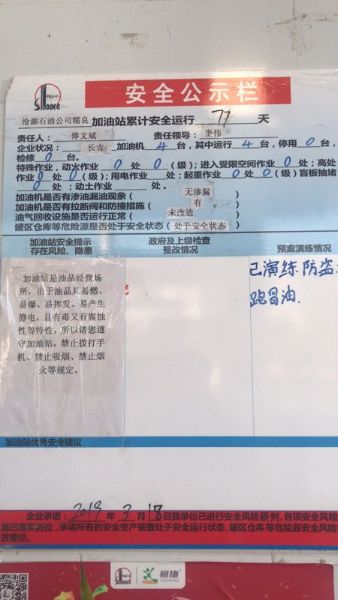 SINOPEC
安全公示栏
沧源石油公司糯良 加油站累计安全运行 77 天
责任人: 俸文斌 责任领导: 李伟
企业状况: 加油机 4 台,其中运行 4 台,停用 0 台,
检修 0 台。
特殊作业,动火作业 0 处 0 (级);进入受限空间作业 0 处;高处
作业 0 处 0 (级);用电作业 处;起重作业 0 处 0 (级)盲板抽堵
0 处;动土作业 处。
加油机是否有渗漏油现象( 无渗漏 )
加油机是否有拉断阀和防撞措施( 有 )
油气回收设施是否运行正常( 未改造 )
罐区仓库等危险源是否处于安全状态(处于安全状态)
加油站安全提示
存在风险、隐患
政府及上级检查
整改情况
预案演练情况
加油站是油品经营场
所,由于油品具易燃、
易爆、易挥发、易产生
静电,且有毒又有腐蚀
性等特性,所以请您遵
守加油站,禁止拨打手
机、禁止吸烟、禁止烟
火等规定。
已演练防盗
跑冒油.
加油站优秀安全建议
企业承诺: 2019 年 3 月 18 日我单位已进行安全风险研判,各项安全风险
施已落实到位,承诺所有的安全生产装置处于安全运行状态,罐区仓库等危险源安全风险
效管控。
易捷